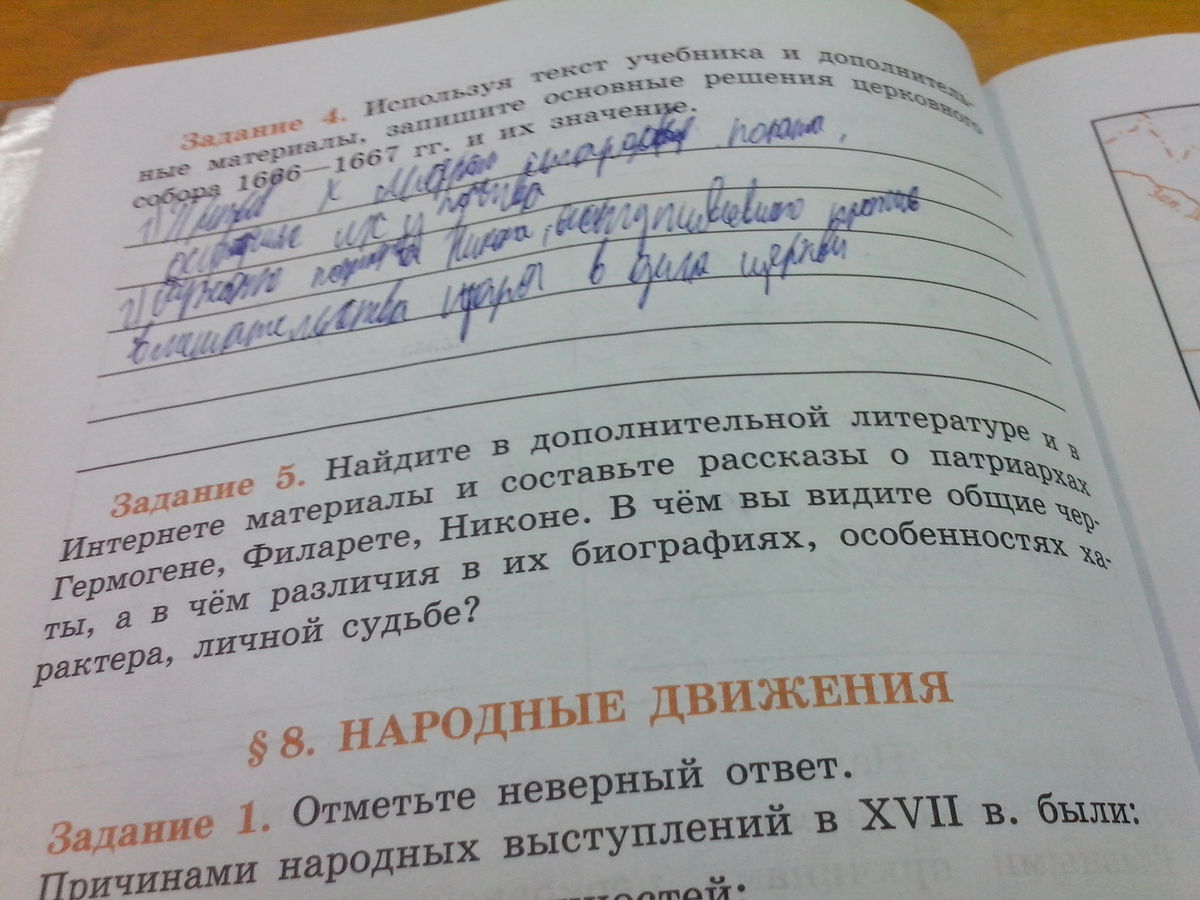 Задание 4. Используя текст учебника и дополнитель-
ные материалы, запишите основные решения церковного
собора 1666—1667 гг. и их значение.
1) к
их у
2) патриарха Никона, выступившего против
вмешательства царя в дела церкви
Задание 5. Найдите в дополнительной литературе и в
Интернете материалы и составьте рассказы о патриархах
Гермогене, Филарете, Никоне. В чём вы видите общие чер-
ты, а в чём различия в их биографиях, особенностях ха-
рактера, личной судьбе?
§ 8. НАРОДНЫЕ ДВИЖЕНИЯ
Задание 1. Отметьте неверный ответ.
Причинами народных выступлений в XVII в. были: